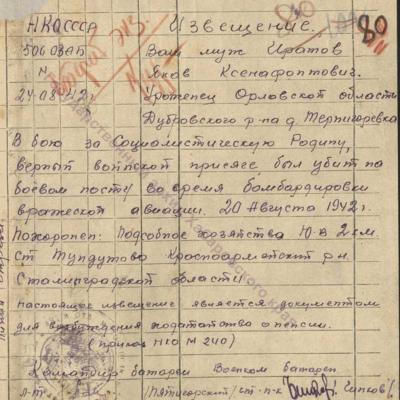 НКОСССР Извещение. 80
50603АБ Ваш муж Иратов
N Яков Ксенафонтович.
24.08.42г. Уроженец Орловской области
Дубровского р-па д. Терпигоревка
В бою за Социалистическую Родину,
верный воинской присяге был убит на
боевом посту во время бомбардировки
вражеской авиации. 20 Августа 1942г.
Похоронен: Подсобное хозяйства Ю-В 2 км.
ст Тундутово Красноармейский р-н.
Сталинградской области
настоящее извещение является документом
для возбуждения ходатайства о пенсии.
(приказ НКО N 240)
Командир батареи Военком батареи
л-т /Пятигорский/ ст-п-к